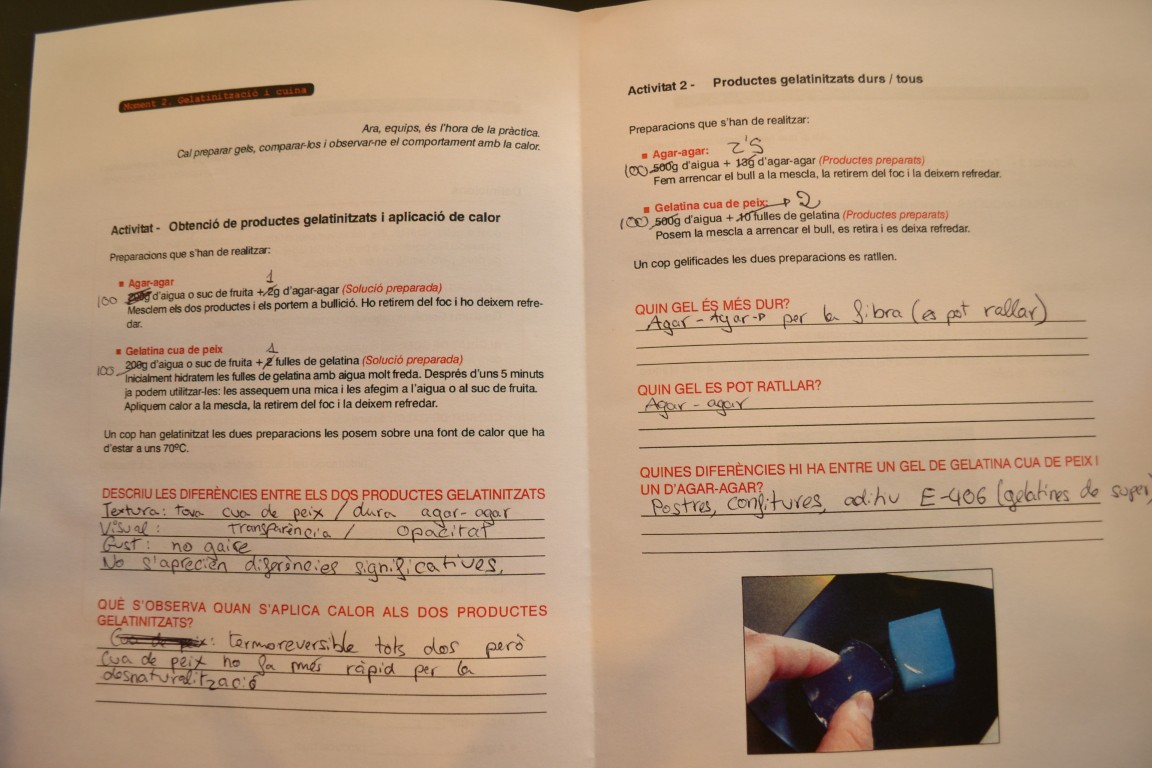 Moment 2. Gelatinització i cuina
Ara, equips, és l'hora de la pràctica.
Cal preparar gels, comparar-los i observar-ne el comportament amb la calor.
Activitat - Obtenció de productes gelatinitzats i aplicació de calor
Preparacions que s'han de realitzar:
Agar-agar 1
100 200g d'aigua o suc de fruita + 2g d'agar-agar (Solució preparada)
Mesclem els dos productes i els portem a bullició. Ho retirem del foc i ho deixem refre-
dar.
Gelatina cua de peix 1
100 200g d'aigua o suc de fruita + 2 fulles de gelatina (Solució preparada)
Inicialment hidratem les fulles de gelatina amb aigua molt freda. Després d'uns 5 minuts
ja podem utilitzar-les: les assequem una mica i les afegim a l'aigua o al suc de fruita.
Apliquem calor a la mescla, la retirem del foc i la deixem refredar.
Un cop han gelatinitzat les dues preparacions les posem sobre una font de calor que ha
d'estar a uns 70ºC.
DESCRIU LES DIFERÈNCIES ENTRE ELS DOS PRODUCTES GELATINITZATS
Textura: tova cua de peix / dura agar-agar
Visual: Transparència / Opacitat
Gust: no gaire
No s'aprecien diferències significatives.
QUÈ S'OBSERVA QUAN S'APLICA CALOR ALS DOS PRODUCTES
GELATINITZATS?
Cua de peix: termoreversible tots dos però
Cua de peix ho fa més ràpid per la
desnaturalització
Activitat 2 - Productes gelatinitzats durs / tous
Preparacions que s'han de realitzar:
Agar-agar: 2'5
100 500g d'aigua + 13g d'agar-agar (Productes preparats)
Fem arrencar el bull a la mescla, la retirem del foc i la deixem refredar.
Gelatina cua de peix: → 2
100 500g d'aigua + 10 fulles de gelatina (Productes preparats)
Posem la mescla a arrencar el bull, es retira i es deixa refredar.
Un cop gelificades les dues preparacions es ratllen.
QUIN GEL ÉS MÉS DUR?
Agar-Agar → per la fibra (es pot rallar)
QUIN GEL ES POT RATLLAR?
Agar-agar
QUINES DIFERÈNCIES HI HA ENTRE UN GEL DE GELATINA CUA DE PEIX I
UN D'AGAR-AGAR?
Postres, confitures, aditiu E-406 (gelatines de super)